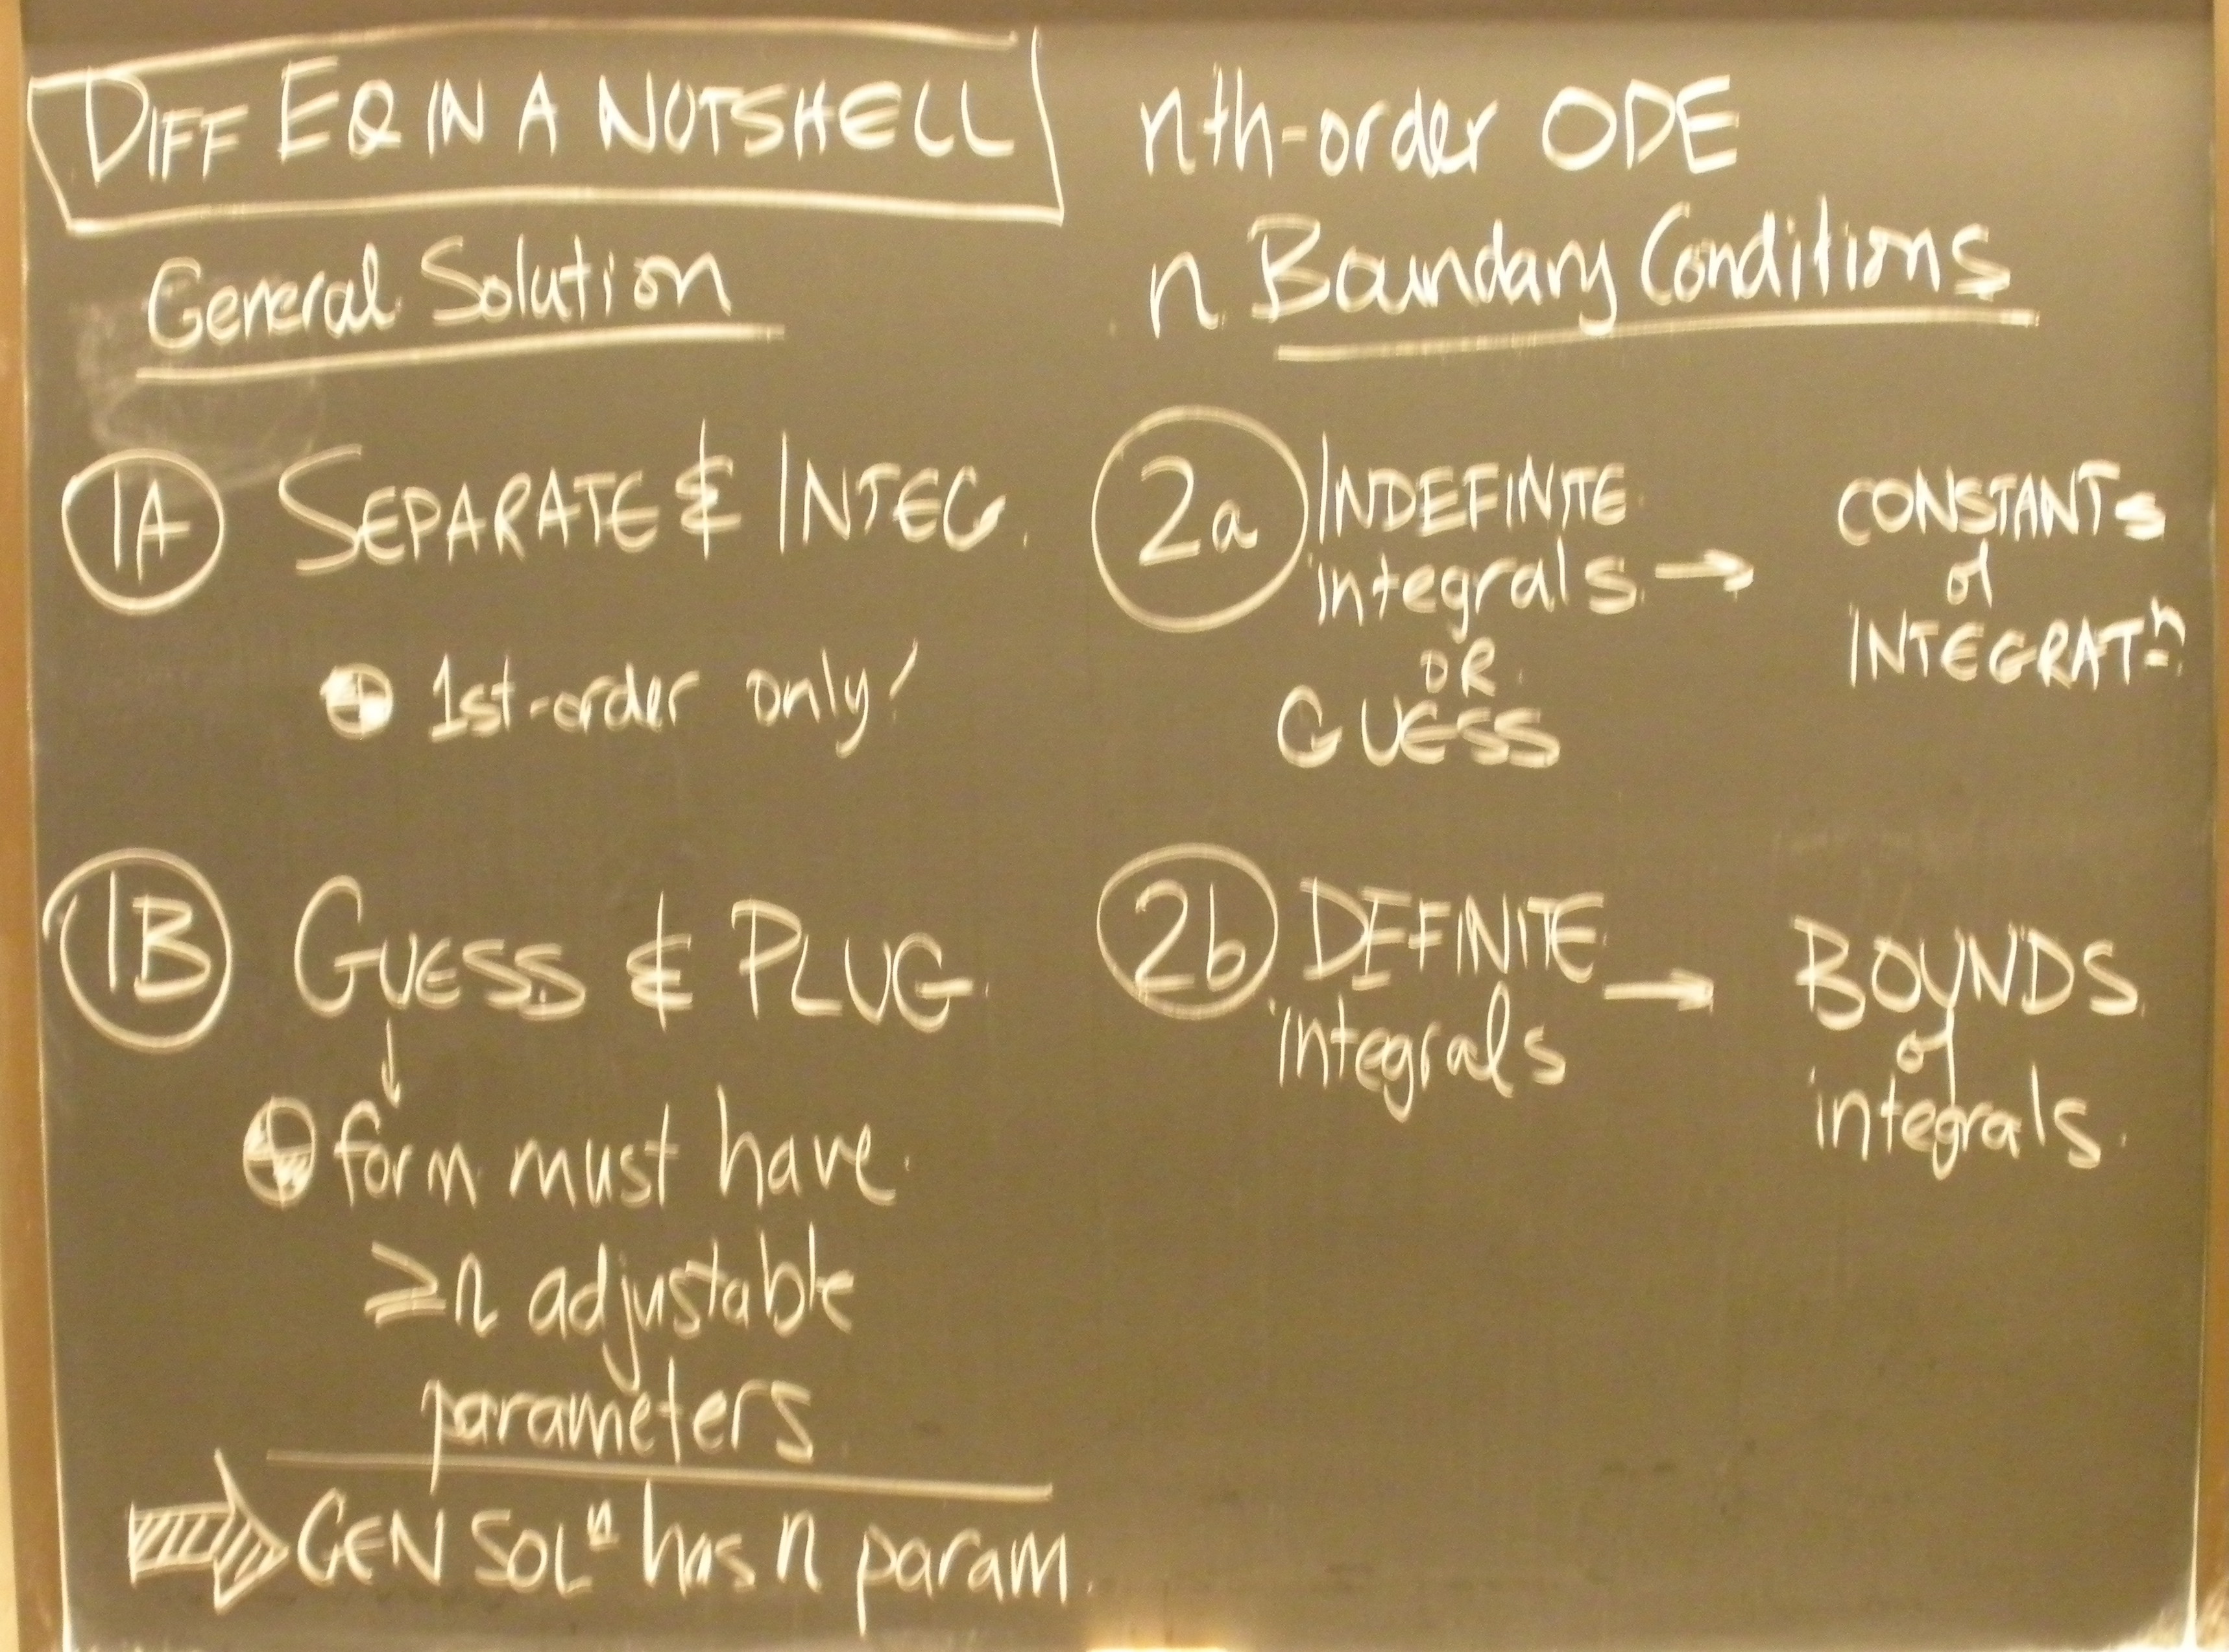 DIFF EQ IN A NUTSHELL
General Solution
1A SEPARATE & INTEG.
1st-order only!
1B GUESS & PLUG
↓
form must have
≥n adjustable
parameters
GEN SOLⁿ has n param.
nth-order ODE
n Boundary Conditions
2a INDEFINITE
integrals →
OR
GUESS
CONSTANTS
of
INTEGRATⁿ
2b DEFINITE
integrals →
BOUNDS
of
integrals.